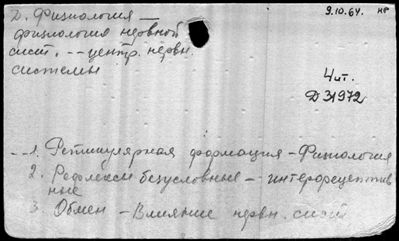 Д. Физиология —
9.10.64. нр
физиология нервной
сист. -- центр. нервн.
системы
Чит.
Д 31972
-- 1. Ретикулярная формация - Физиология
2. Рефлексы безусловные -- интерорецептив
ные
3. Обмен - Влияние нервн. сист